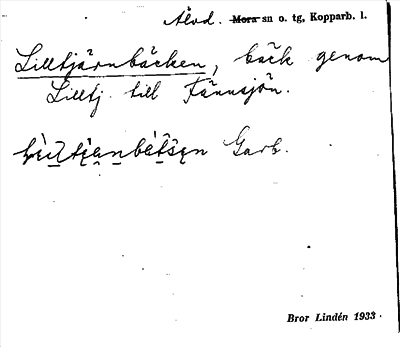 Älvd. Mora sn o. tg, Kopparb. l.
Lilltjärnbäcken, bäck genom
Lilltj. till Fännsjön.
Garb.
Bror Lindén 1933.